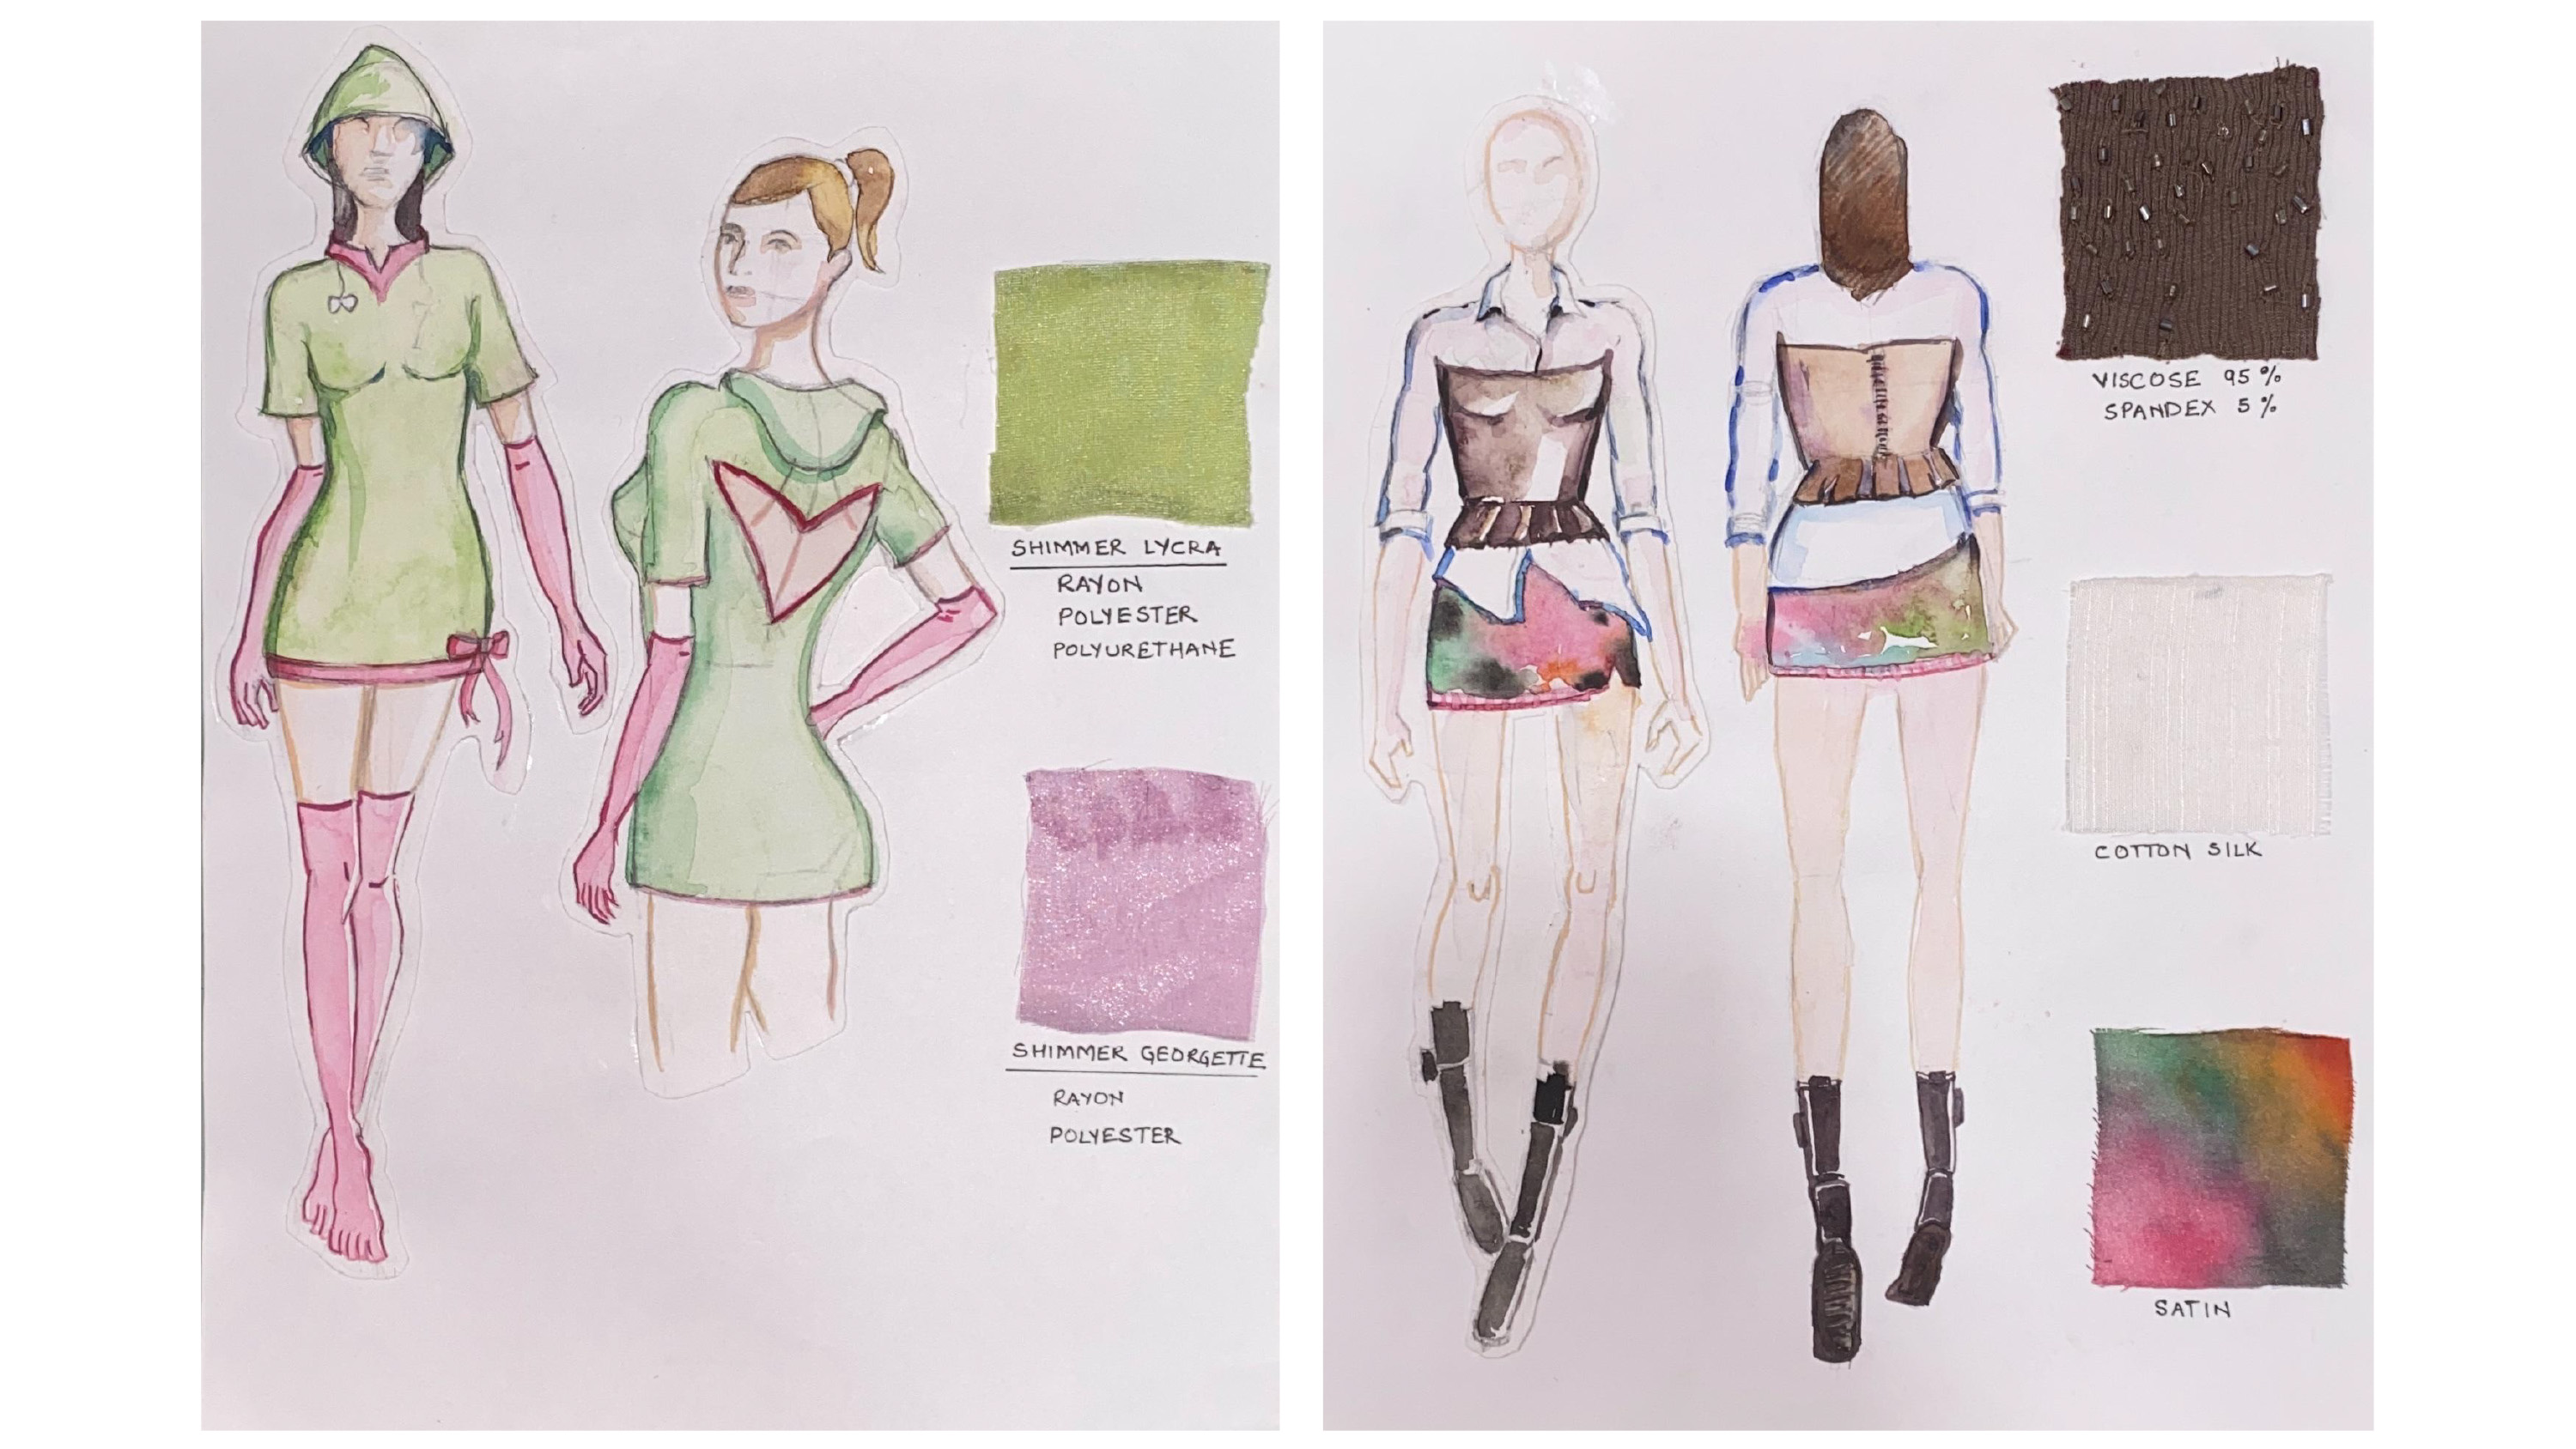 SHIMMER LYCRA
RAYON
POLYESTER
POLYURETHANE
SHIMMER GEORGETTE
RAYON
POLYESTER
VISCOSE 95%
SPANDEX 5%
COTTON SILK
SATIN